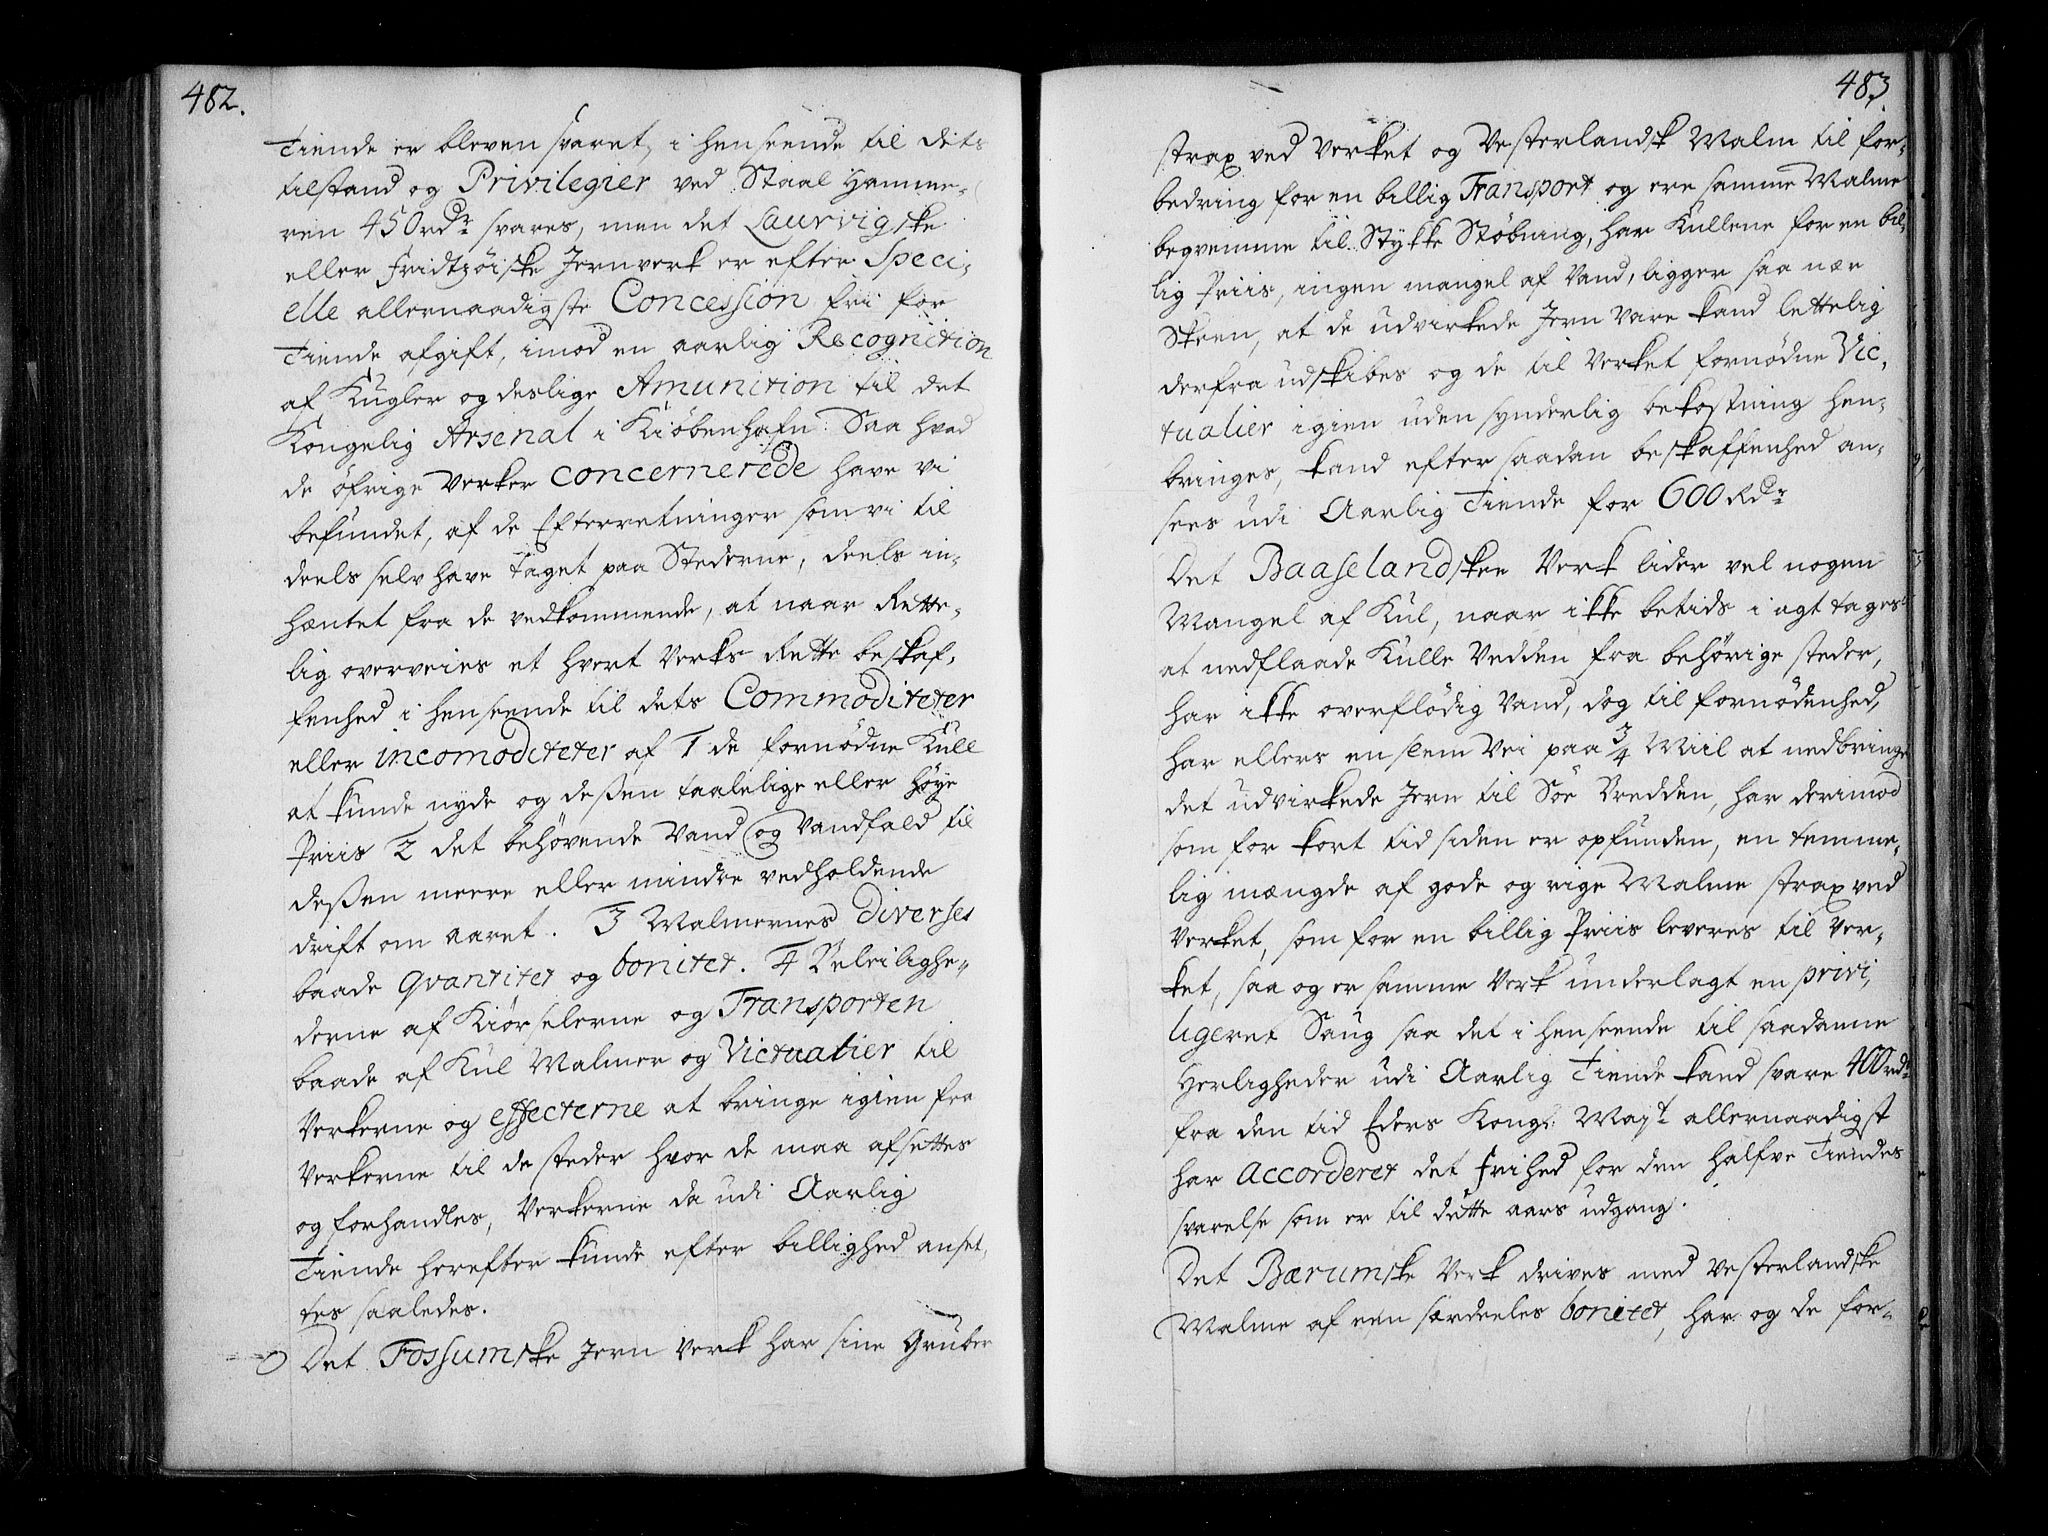 482.
Tiende er bleven svaret, i henseende til dets
tilstand og Privilegier ved Staal Hamme-
ren 450 rdr svares, men det Laurvigske
eller Fridtzöiske Jernverk er efter Speci-
elle allernaadigste Concession fri for
Tiende afgift, imod en aarlig Recognition
af Kugler og deslige Amunition til det
Kongelig Arsenal i Kiöbenhafn. Saa hvad
de öfrige Verker concernerede have vi
befundet, af de Efterretninger som vi til
deels selv have taget paa Stederne, deels in-
hæntet fra de vedkommende, at naar Rette-
lig overveies et hvert Verks Rette beskaf-
fenhed i henseende til dets Commoditeter
eller incomoditeter af 1 de fornødne Kull
at kunde nyde og deßen taalelige eller høye
Priis 2 det behøvende Vand og Vandfald til
deßen meere eller mindre vedholdende
drift om aaret. 3 Malmernes diverses
baade qvantitet og bonitet. 4 Beleilighe-
derne af Kiörselerne og Transporten
baade af Kul Malmer og Victualier til
Verkerne og effecterne at bringe igien fra
Verkerne til de steder hvor de maa afsettes
og forhandles, Verkerne da udi Aarlig
Tiende herefter kunde efter billighed anset-
tes saaledes.
Det Fossumske Jern Verk har sine Gruber
483
strax ved Verket og Vesterlandsk Malm til for-
bedring for en billig Transport og ere samme Malme
beqvemme til Stykke Støbning, har Kullene for en bil-
lig Priis, ingen mangel af Vand, ligger saa nær
Skeen, at de udvirkede Jern Vare kand lettelig
derfra udskibes og de til Verket fornødne Vic-
tualier igien uden synderlig bekostning hen-
bringes, kand efter saadan beskaffenhed an-
sees udi Aarlig Tiende for 600 Rdr
Det Baaselandskee Verk lider vel nogen
Mangel af Kul, naar ikke betids i agt tages
at nedflaade Kulle Vedden fra behörige steder,
har ikke overflödig Vand, dog til fornødenhed,
har ellers en slem Vei paa 3/4 Miil at nedbringe
det udvirkede Jern til Söe Bredden, har derimod
som for kort tid siden er opfunden, en temme-
lig mængde af gode og rige Malme strax ved
Verket, som for en billig Priis leveres til Ver-
ket, saa og er samme Verk underlagt en privi-
ligeret Saug saa det i henseende til saadanne
Herligheder udi Aarlig Tiende kand svare 400 rdr
fra den tid Eders Kongl: Mayt allernaadigst
har accorderet det frihed for den halfve Tiendes
svarelse som er til dette aars udgang.
Det Bærumske Verk drives med Vesterlandske
Malme af een særdeeles bonitet, har og de for-